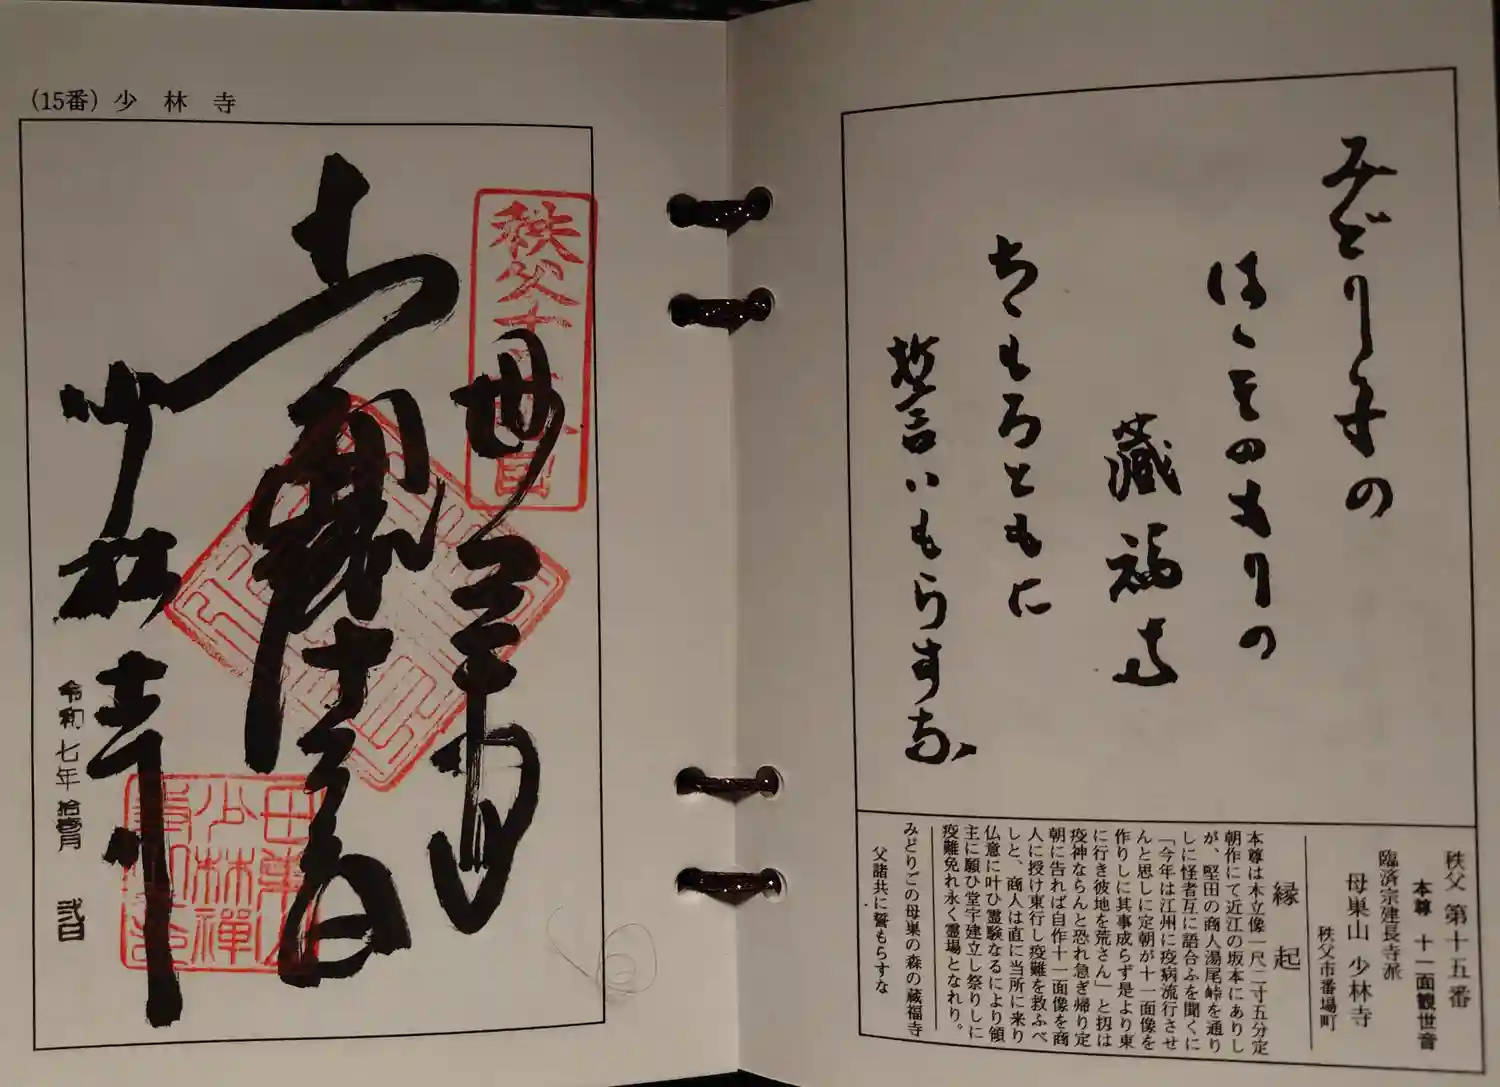 みどり子の
はゝそのもりの
蔵福寺
ちゝもろともに
誓いもらすな
秩父 第十五番
本尊 十一面観世音
臨済宗建長寺派
母巣山 少林寺
秩父市番場町
縁起
本尊は木立像一尺二寸五分定
朝作にて近江の坂本にありし
が、堅田の商人湯尾峠を通り
しに怪者互に語合ふを聞くに
「今年は江州に疫病流行させ
んと思しに定朝が十一面像を
作りしに其事成らず是より東
に行き彼地を荒さん」と扨は
疫神ならんと恐れ急ぎ帰り定
朝に告れば自作十一面像を商
人に授け東行し疫難を救ふべ
しと、商人は直に当所に来り
仏意に叶ひ霊験なるにより領
主に願ひ堂宇建立し祭りしに
疫難免れ永く霊場となれり。
みどりごの母巣の森の蔵福寺
父諸共に誓もらすな
(15番) 少林寺
少林寺
令和七年 拾壱月 弐日